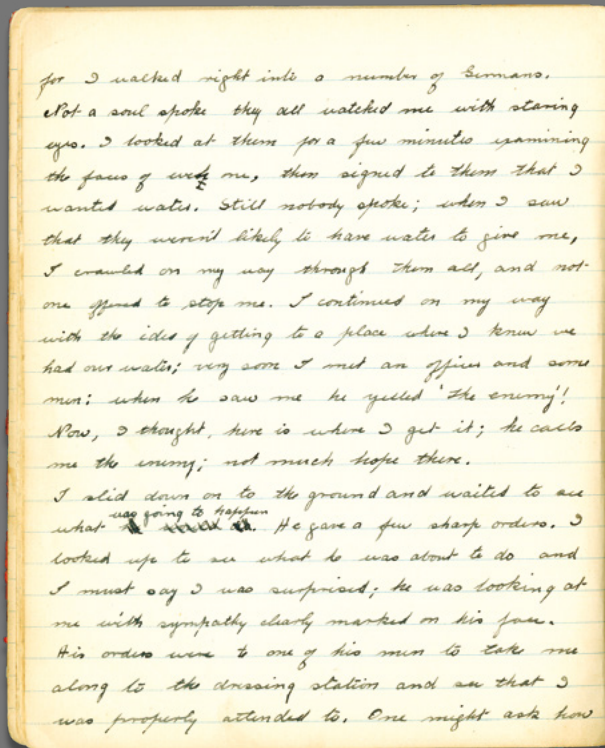 for I walked right into a number of Germans.
Not a soul spoke they all watched me with staring
eyes. I looked at them for a few minutes examining
the faces of each me, then signed to them that I
wanted water. Still nobody spoke; when I saw
that they weren't likely to have water to give me,
I crawled on my way through them all, and not
one offered to stop me. I continued on my way
with the idea of getting to a place where I knew we
had our water; very soon I met an officer and some
men: when he saw me he yelled 'the enemy'!
Now, I thought, here is where I get it; he calls
me the enemy; not much hope there.
I slid down on to the ground and waited to see
was going to happen
what . He gave a few sharp orders. I
looked up to see what he was about to do and
I must say I was surprised; he was looking at
me with sympathy clearly marked on his face.
His orders were to one of his men to take me
along to the dressing station and see that I
was properly attended to. One might ask how